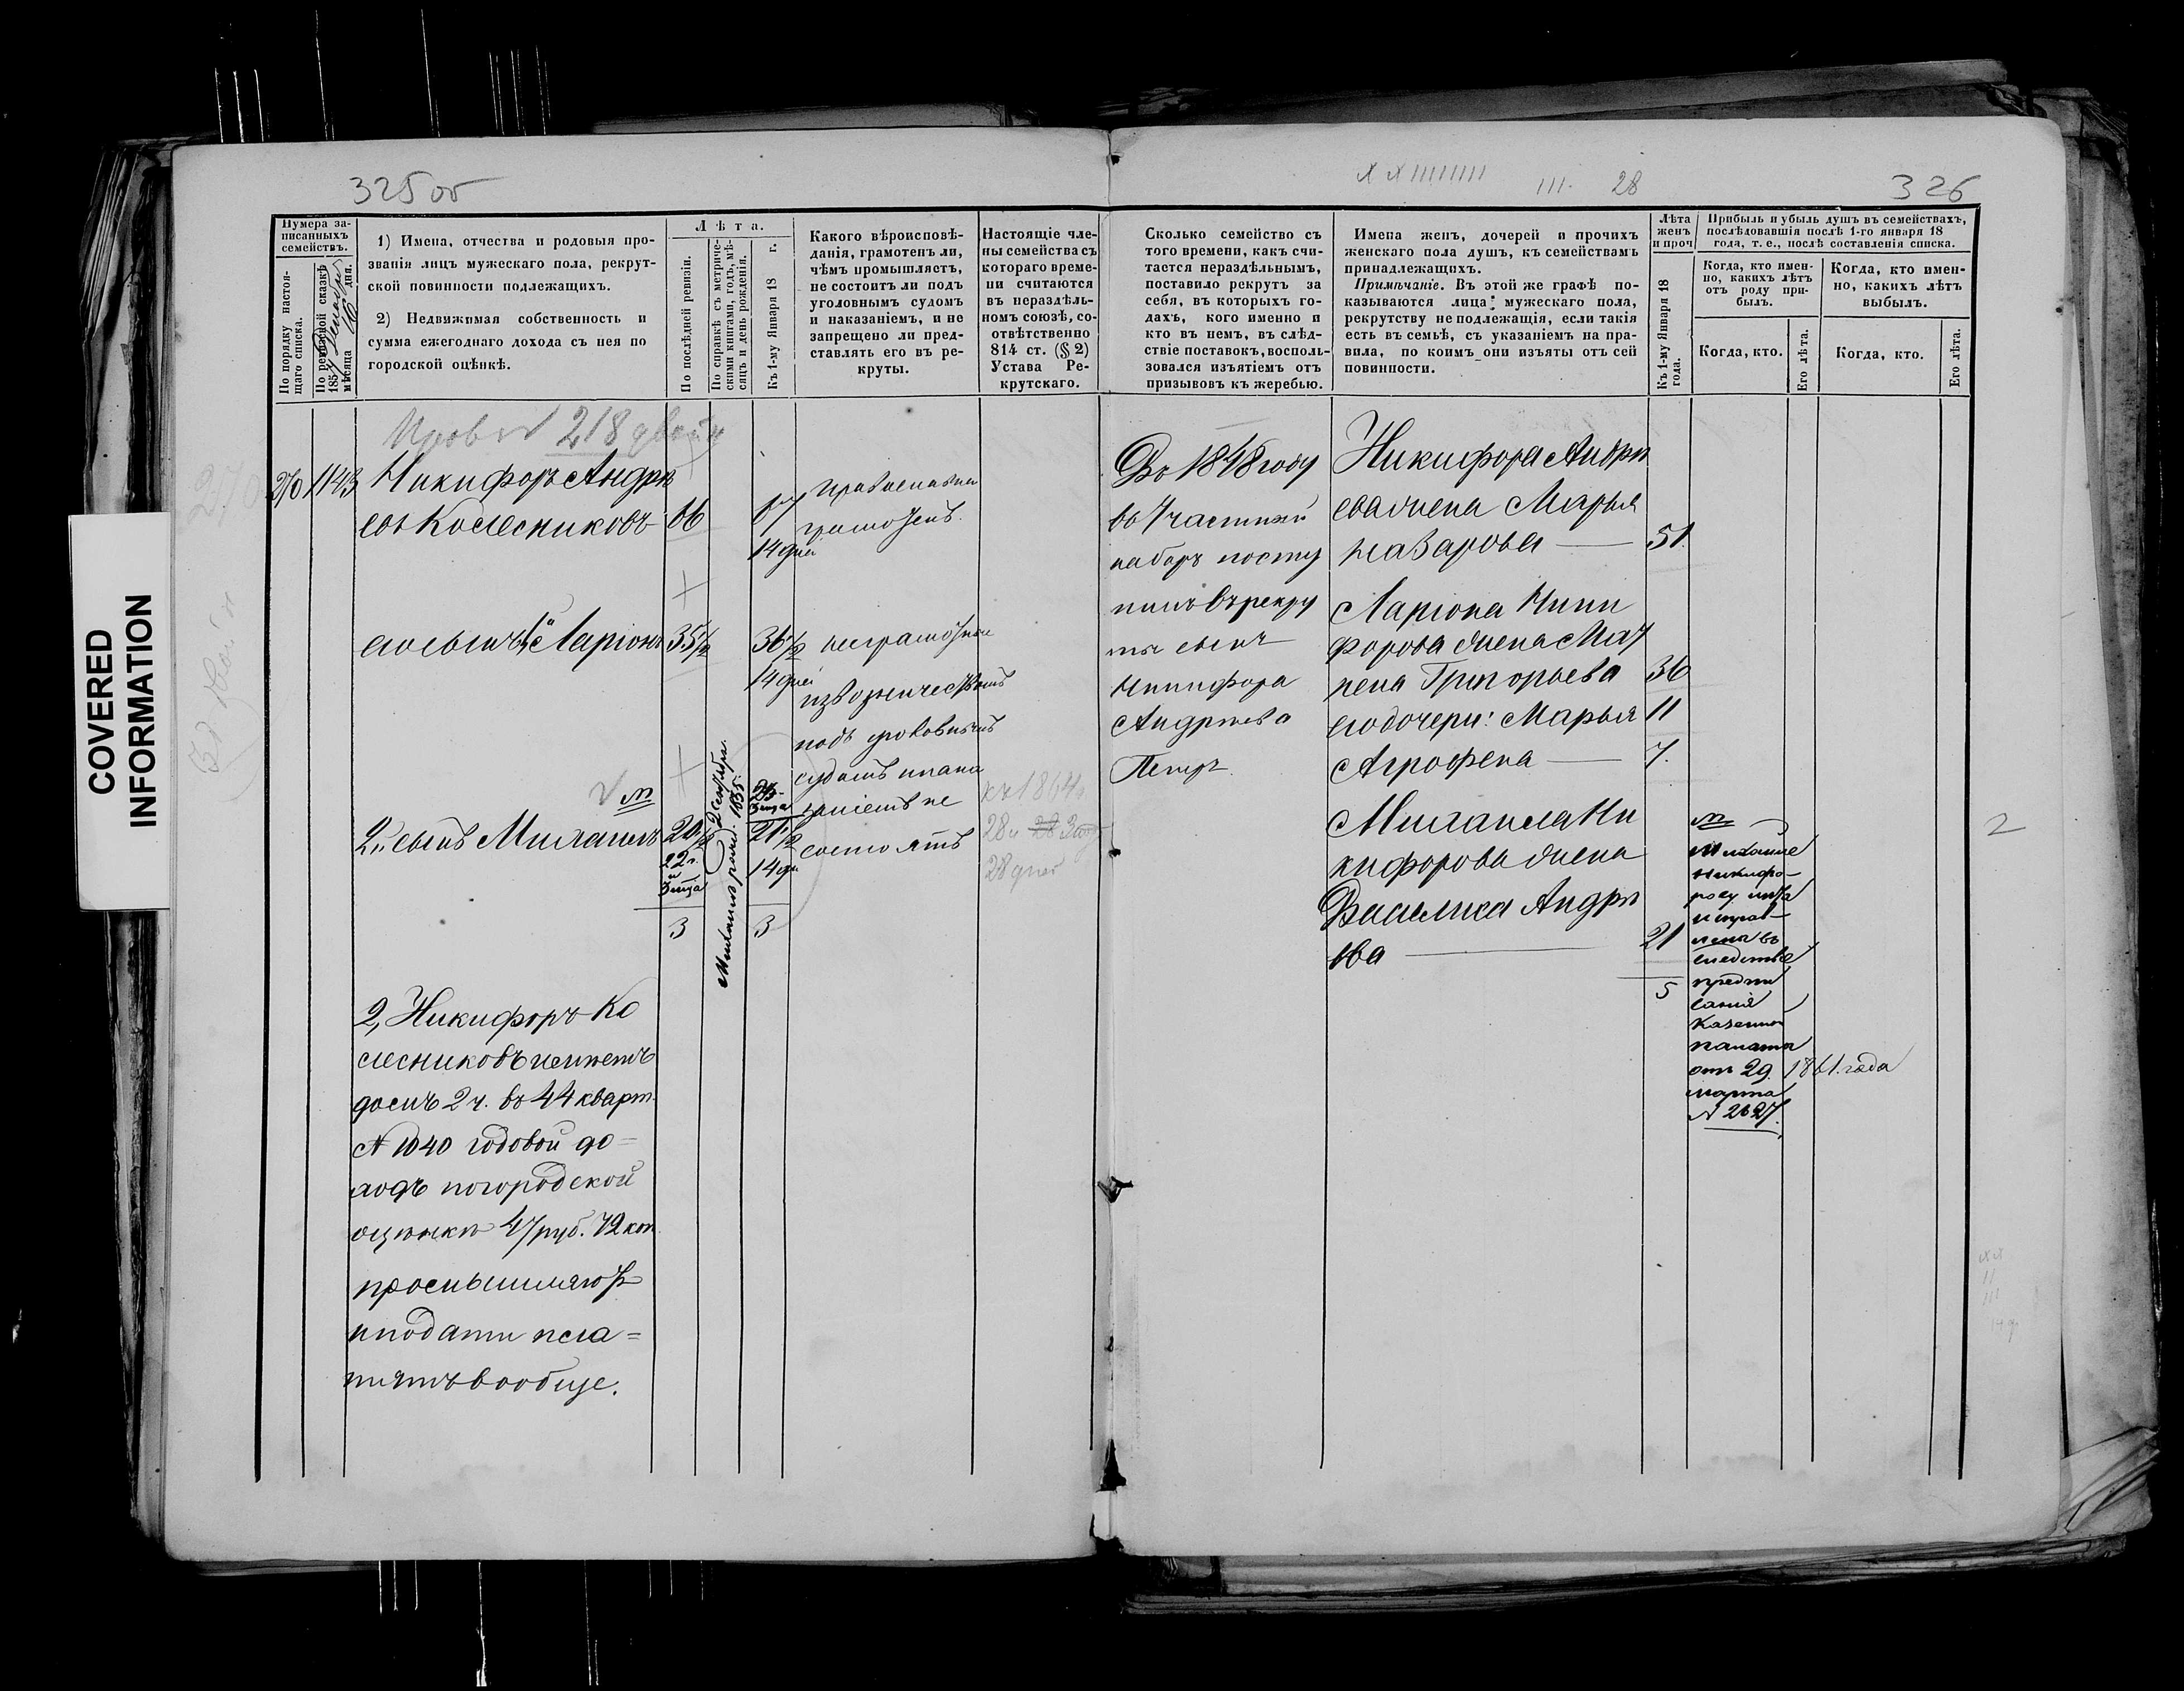 325 об
Нумера за-
писанныхъ
семействъ.
По порядку настоя-
щаго списка.
По ревизской сказкѣ
185
мѣсяца 16 дня.
1) Имена, отчества и родовыя про-
званія лицъ мужескаго пола, рекрут-
ской повинности подлежащихъ.
2) Недвижимая собственность и
сумма ежегоднаго дохода съ нея по
городской оцѣнкѣ.
Лѣта.
По послѣдней ревизіи.
По справкѣ съ метриче-
скими книгами, годъ, мѣ-
сяцъ и день рожденія.
Къ 1-му Января 18 г.
Какого вѣроисповѣ-
данія, грамотенъ ли,
чѣмъ промышляетъ,
не состоитъ ли подъ
уголовнымъ судомъ
и наказаніемъ, и не
запрещено ли пред-
ставлять его въ ре-
круты.
Настоящіе чле-
ны семейства съ
котораго време-
ни считаются
въ нераздѣль-
номъ союзѣ, со-
отвѣтственно
814 ст. (§ 2)
Устава Ре-
крутскаго.
218
270 1143 Никифоръ Андре
евъ Колесниковъ 66
67
14 дней
православн
грамотенъ.
его сынъ 1й Ларіонъ 35 1/2
36 1/2
14 дней
неграмотные
извозничествомъ
подъ уголовнымъ
судомъ и нака
заніемъ не
состоятъ
2й сынъ Михаилъ 20 1/2
22 г.
и
3 мца
Михаилъ рожд. 2 Сентября 1835.
23
3 мца
21 1/2
14 дн
3 3
къ 1864
28
28 дней
2, Никифоръ Ко
лесниковъ имѣетъ
домъ 2 ч. въ 44 кварт.
№ 1040 годовой до=
ходъ по городской
оцѣнкѣ 47 руб. 72 коп.
промышляютъ
и подати пла=
тятъ вообще.
28
326
Сколько семейство съ
того времени, какъ счи-
тается нераздѣльнымъ,
поставило рекрутъ за
себя, въ которыхъ го-
дахъ, кого именно и
кто въ немъ, въ слѣд-
ствіе поставокъ, восполь-
зовался изъятіемъ отъ
призывовъ къ жеребью.
Имена женъ, дочерей и прочихъ
женскаго пола душъ, къ семействамъ
принадлежащихъ.
Примѣчаніе. Въ этой же графѣ по-
казываются лица мужескаго пола,
рекрутству не подлежащія, если такія
есть въ семьѣ, съ указаніемъ на пра-
вила, по коимъ они изъяты отъ сей
повинности.
Лѣта
женъ
и проч
Къ 1-му Января 18
года.
Прибыль и убыль душъ въ семействахъ,
послѣдовавшія послѣ 1-го января 18
года, т. е., послѣ составленія списка.
Когда, кто имен-
но, какихъ лѣтъ
отъ роду при-
былъ.
Когда, кто имен-
но, какихъ лѣтъ
выбылъ.
Когда, кто.
Его лѣта.
Когда, кто.
Его лѣта.
Въ 1848 году
въ частный
наборъ посту
пилъ въ рекру
ты сынъ
Никифора
Андреева
Петръ.
Никифора Андре
ева жена Марья
Назарова — 51.
Ларіона Ники
форова жена Мат
рена Григорьева 36
его дочери: Марья 11
Агрофена — 7.
Михаила Ни
кифорова жена
Василиса Андре
ева — 21
5
Михаиле
Никифо-
рову лѣта
исправ-
лены въ
следствіе
предпи
санія
Казенной
палаты
отъ 29. 1861. года
марта
№ 2627.
2
COVERED
INFORMATION